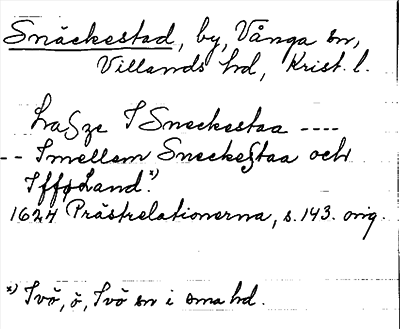 Snäckestad, by, Vånga sn,
Villands hd, Krist. l.
Lasze I Sneckestaa ----
-- Imellem Sneckestaa och
Iffø Land.x)
1624 Prästrelationerna, s. 143. orig.
x) Ivö, ö, Ivö sn i sma hd.